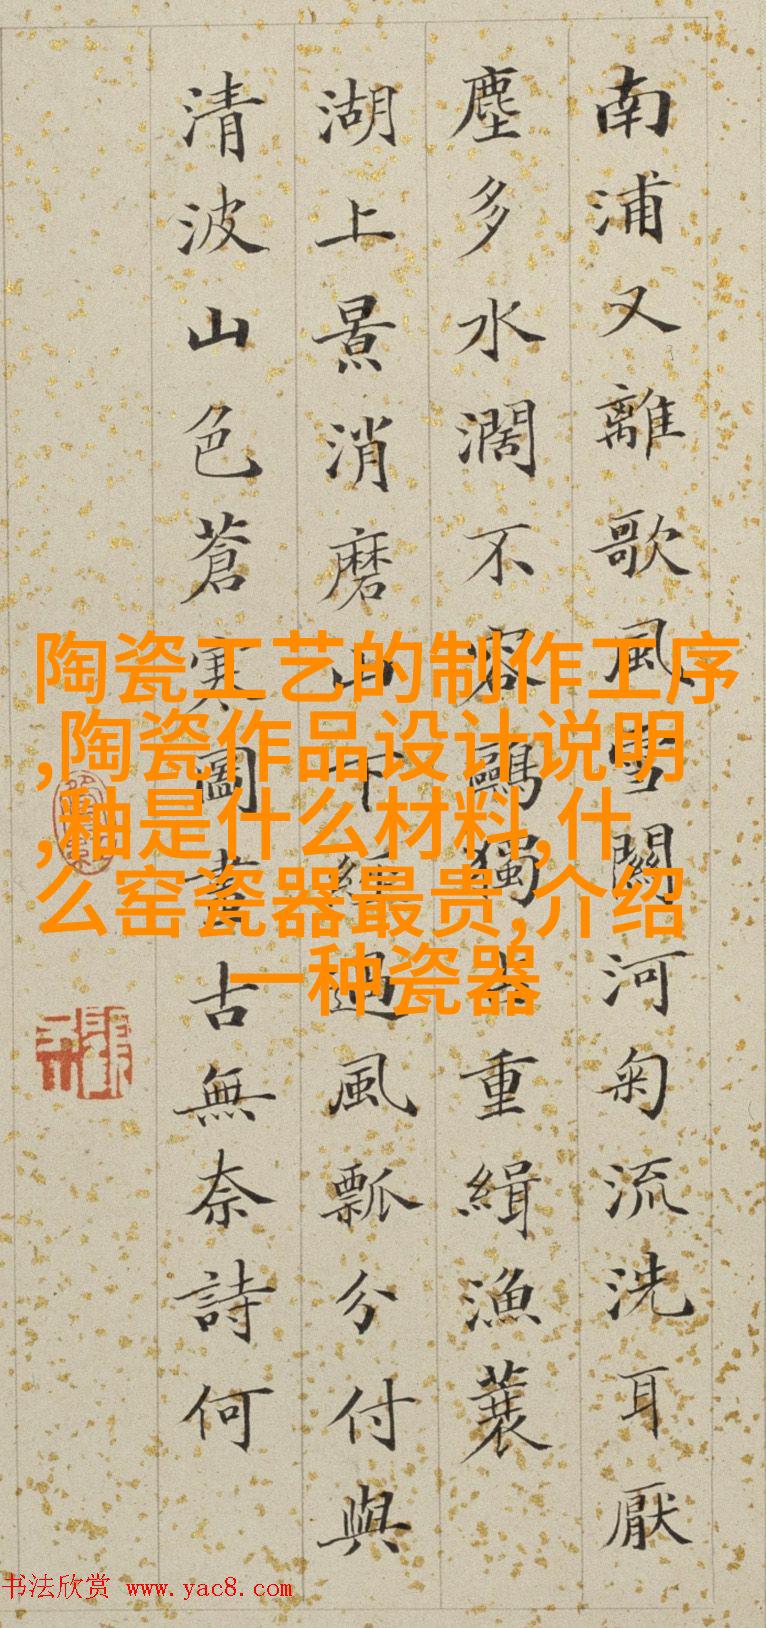 南浦又離歌風雪關河匊流洗耳厭
塵多水濶不容鷗獨占重緝漁蓑
湖上景消磨山下經過風瓢分付與
清波山色蒼寒圖畫古無奈詩何
陶瓷工艺的制作工序
,陶瓷作品设计说明
,釉是什么材料,什
么窑瓷器最贵,介绍
一种瓷器
书法欣赏 www.yac8.com